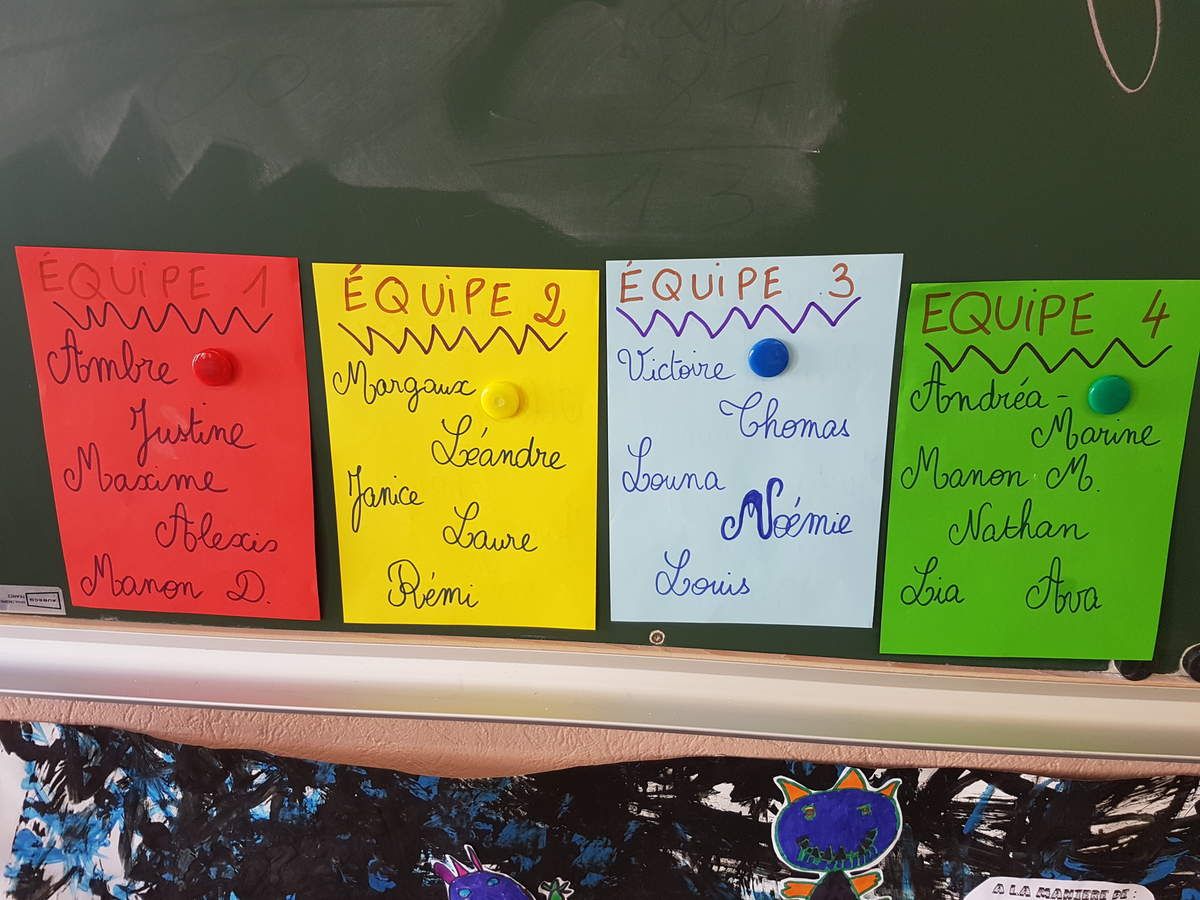 ÉQUIPE 1
Ambre
Justine
Maxime
Alexis
Manon D.
ÉQUIPE 2
Margaux
Léandre
Janice
Laure
Rémi
ÉQUIPE 3
Victoire
Thomas
Louna
Noémie
Louis
EQUIPE 4
Andréa-
Marine
Manon M.
Nathan
Lia Ava
A LA MANIERE DE :